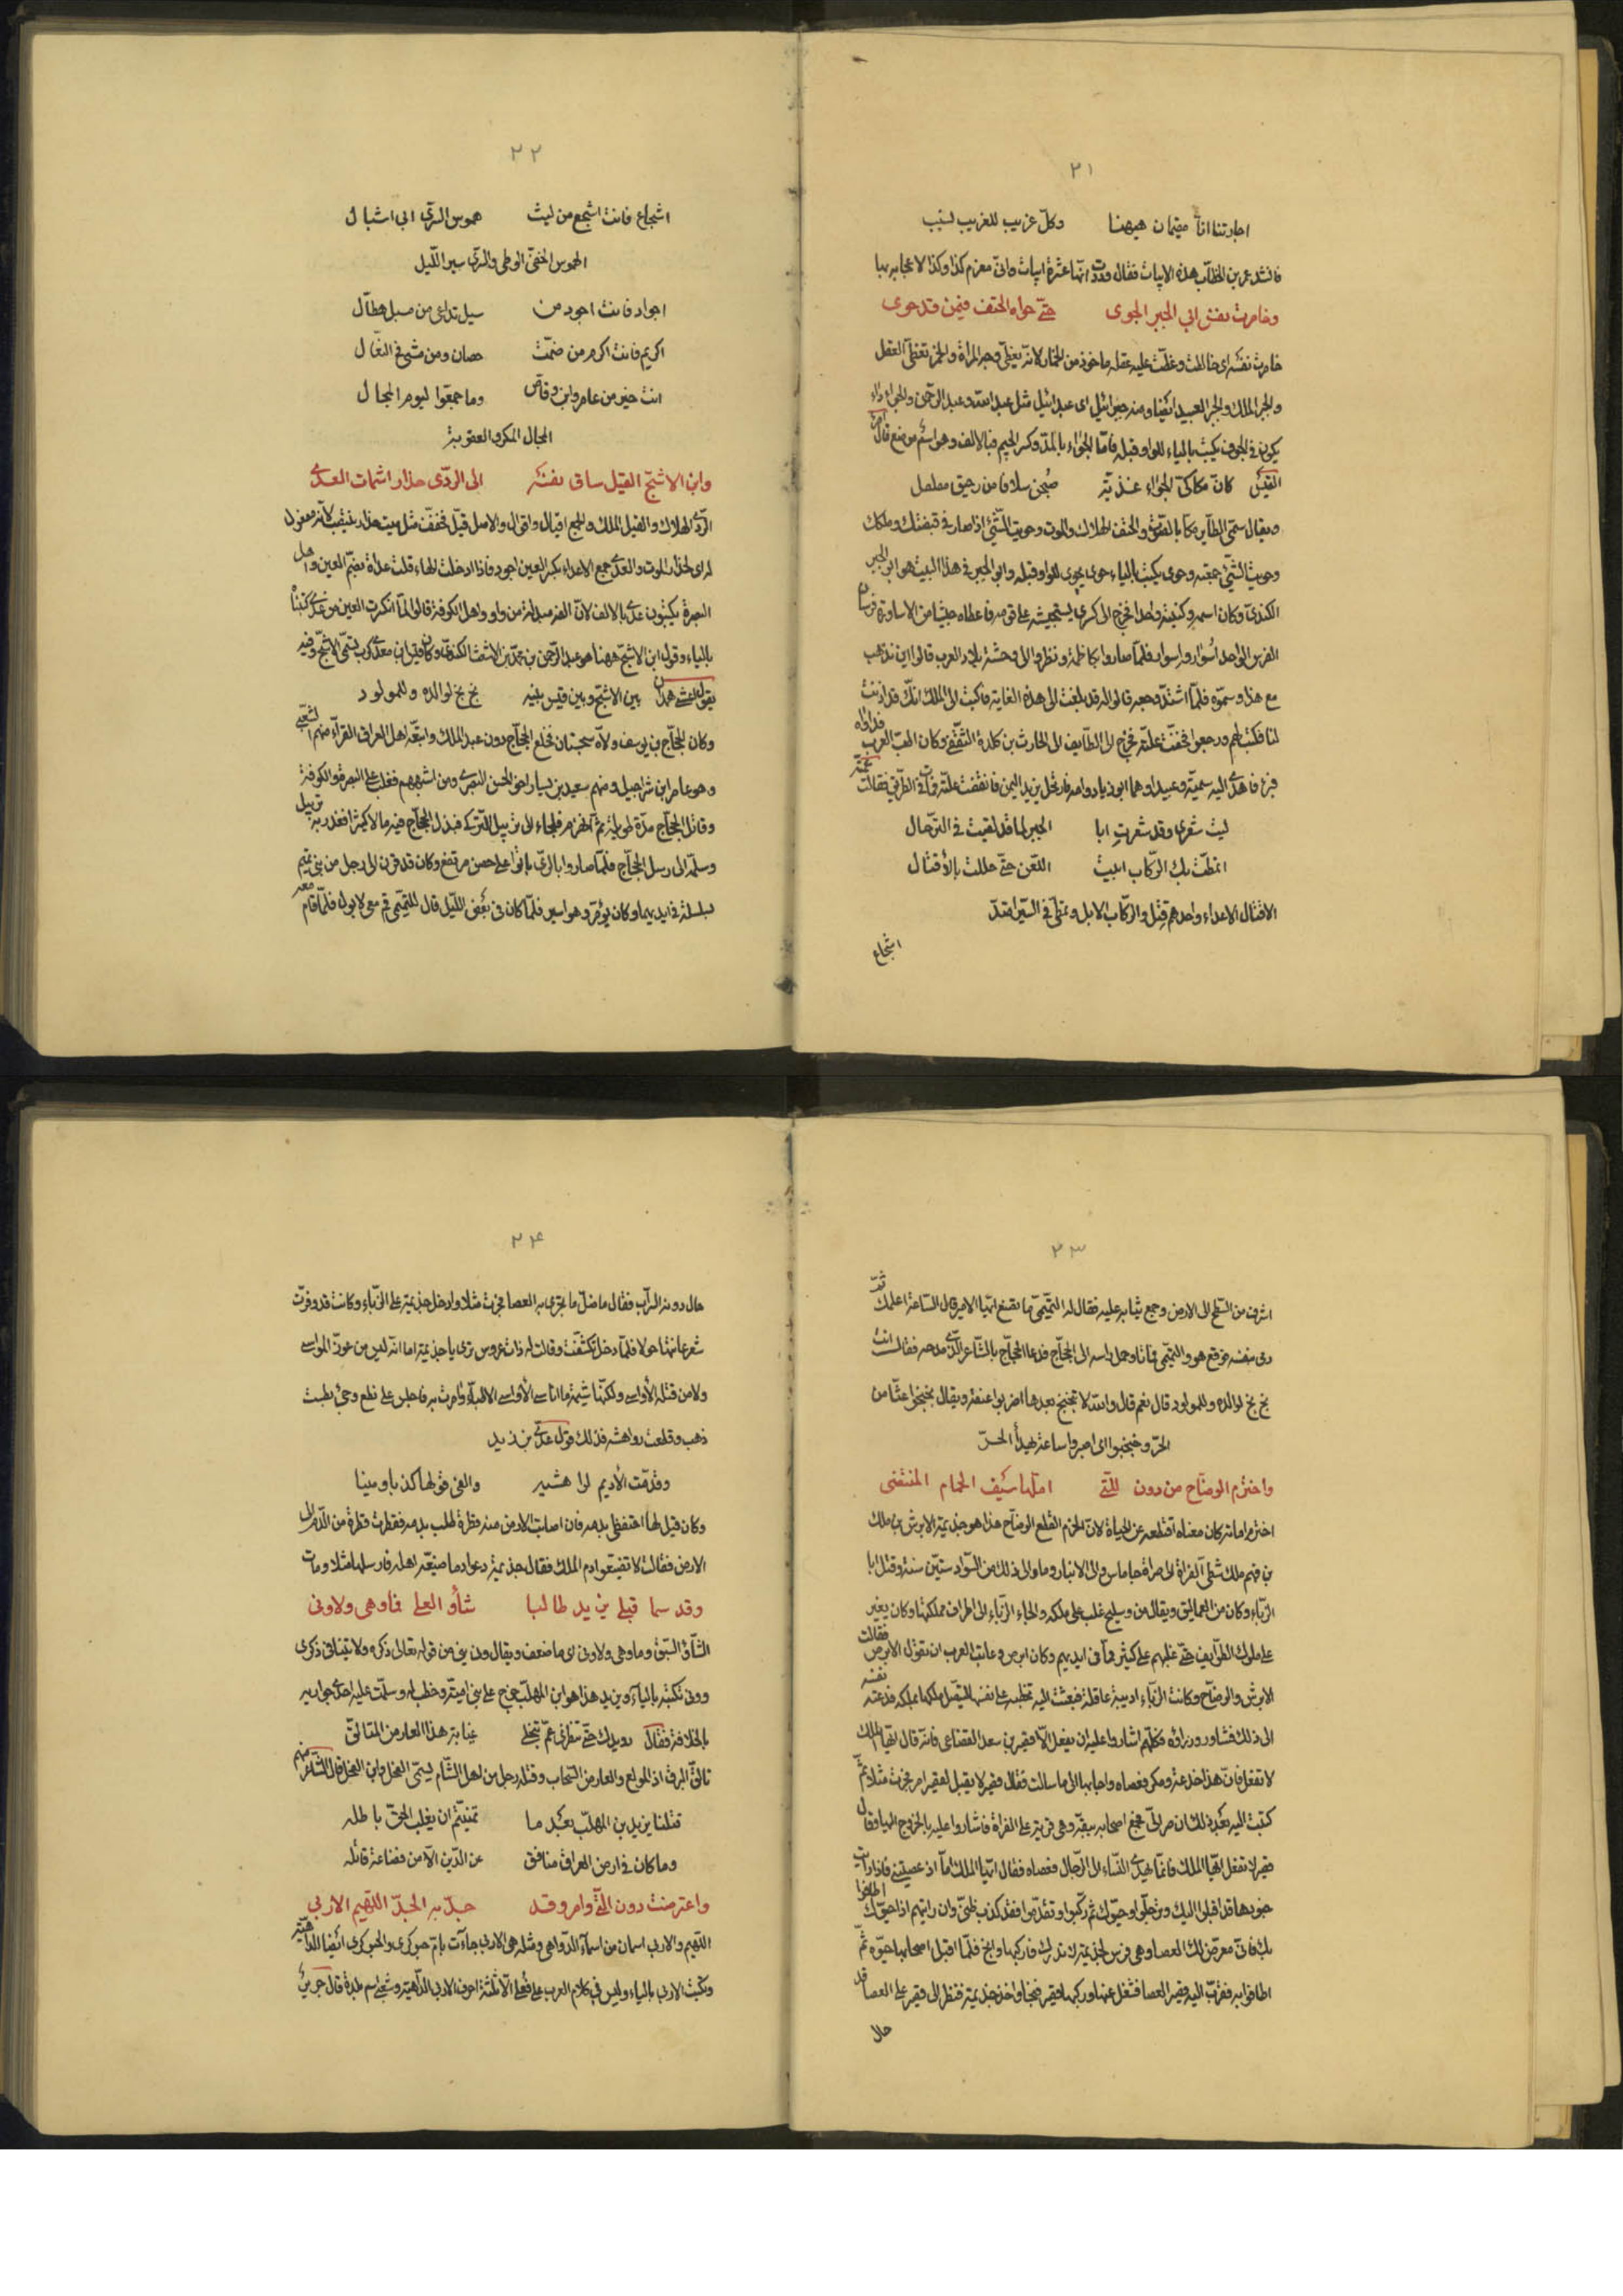 ٢١
اجارتنا انا مقيمان هيهنا وكل غريب للغريب نسيب
فانشد عمر بن الخطاب هذه الابيات فقال وددت انها عشرة ابيات وانى مغرم كذا وكذا لاعجابه بها
وخامرت نفس ابى الجبر الجوى حتى حواه الحتف فيمن قد حوى
خامرت نفسه اى خالطت وغلبت عليه عقله ماخوذ من الخمار لانه يغطى وجه المراة والخمر تغطى العقل
والجبر الملك والجبر العبد ايضا ومنه جبرائيل اى عبد ائيل مثل عبد الله وعبد الرحمن والجوى داء
يكون فى الجوف يكتب بالياء للواو قبله فاما الجواء بالمد وكسر الجيم فبالالف وهو اسم موضع قال امرؤ
القيس كان مكاكى الجواء غدية صبحن سلافا من رحيق مفلفل
وحويت الشئ جمعته وحوى يكتب بالياء حوى يحوى للواو قبله وابو الجبر فى هذا البيت هو ابو الجبر
الكندى وكان اسمه وكنيته واحدا فخرج الى كسرى يستجيشه على قومه فاعطاه جيشا من الاساورة فرسان
الفرس الواحد اسوار واسوار فلما صاروا بكاظمة ونظروا الى وحشة بلاد العرب قالوا اين نذهب
مع هذا وسموه فلما اشتد وجعه قالوا له قد بلغت الى هذه الغاية فاكتب الى الملك انك قد اذنت
لنا فكتب لهم ورجعوا فخفت علته فخرج الى الطايف الى الحارث بن كلدة الثقفى وكان اطب العرب فداواه
فبرئ فاهدى اليه سمية وعبيدا وهما ابو زياد وامه فارتحل يريد اليمن فانتقضت علته فمات فى الطريق فقالت عمته
ليت شعرى وقد شعرت ابا الجبر لما قد لقيت فى الترحال
اتمطت بك الركاب ابيت اللعن حتى حللت بالاقتال
الاقتال الاعداء واحدهم قتل والركاب الابل وتمطى فى السير امتد
اشجاع
٢٢
اشجاع فانت اشجع من ليث هموس السرى ابى اشبال
الهموس الخفى الوطى والسرى سير الليل
اجواد فانت اجود من سيل تداعى من مسبل هطال
اكريم فانت اكرم من ضمت حصان ومن مشى فى النعال
انت خير من عامر وابن وقاص وما جمعوا ليوم المحال
المحال المكر والعقوبة
وابن الاشج القيل ساق نفسه الى الردى حذار اشمات العدى
الردى الهلاك والقيل الملك والجمع اقيال واقوال والاصل قيل فخفف مثل ميت حذار نصبت لانه مفعول
له اى لحذار الموت والعدى جمع الاعداء بكسر العين اجود فاذا ادخلت الهاء قلت عداة بضم العين واهل
البصرة يكتبون عدى بالالف لان الفه مبدلة من واو واهل الكوفة قالوا لما انكسرت العين من عدى كتبناه
بالياء وقوله ابن الاشج ههنا هو عبد الرحمن بن محمد بن الاشعث الكندى وكان قيس ابن معدى كرب يسمى الاشج وفيه
يقول اعشى همدان بين الاشج وبين قيس بيته بخ بخ لوالده وللمولود
وكان الحجاج بن يوسف ولاه سجستان فخلع الحجاج دون عبد الملك واتبعه اهل العراق القراء منهم الشعبى
وهو عامر ابن شراحيل ومنهم سعيد بن يسار اخى الحسن البصرى ومن اشبههم فغلب على البصرة والكوفة
وقاتل الحجاج مدة طويلة ثم انهزم فلجاء الى رتبيل التركى فبذل الحجاج فيه مالا كثيرا فغدر به رتبيل
وسلمه الى رسل الحجاج فلما صاروا بالرى باتوا على حصن مرتفع وكان قد قرن الى رجل من بنى تميم
بسلسلة فى ايديهما وكان يؤمر وهو اسير فلما كان فى بعض الليل قال للتميمى قم معى لابول فلما قام معه
٢٣
اشرف من السطح الى الارض وجمع ثيابه عليه فقال له التميمى ما تصنع ايها الامير قال الساعة اعلمك ثم
رمى بنفسه فوقع هو والتميمى فماتا وحمل راسه الى الحجاج فدعا الحجاج بالشاعر الذى مدحه فقال له انت
بخ بخ لوالده وللمولود قال نعم قال والله لا تبخبخ بعدها اضربوا عنقه ويقال بخبخوا عنا من
الحر وخبخبوا اى اصبروا ساعة ليهدأ الحر
واخترم الوضاح من دون التى املها سيف الحمام المنتضى
اخترم اماته كان معناه اقتلعه عن الحياة لان الخرم القلع الوضاح هذا هو جذيمة الابرش بن مالك
بن فهم ملك شطى الفراة الى صراة جاماس والى الانبار وما والى ذلك من السواد ستين سنة وقتل ابا
الزباء وكان من العماليق ويقال من وسليح غلب على ملكه والجاء الزباء الى اطراف مملكتها وكان يغير
على ملوك الطوايف حتى غلبهم على كثير مما فى ايديهم وكان ابرص وعابت العرب ان تقول الابرص فقالت
الابرش والوضاح وكانت الزباء اديبة عاقلة فبعثت اليه تخطبه على نفسها ليتصل ملكها بملكه فدعته نفسه
الى ذلك فشاور وزراؤه فكلهم اشاروا عليه ان يفعل الا قصير بن سعد القضاعى فانه قال ايها الملك
لا تفعل فان هذا خدعة ومكر فعصاه واجابها الى ما سالت فقال قصير لا يقبل لقصير امر فجرت مثلا ثم
كتبت اليه بعد ذلك ان صر الى فجمع اصحابه ببقة وهى قرية على الفراة فشاروا عليه بالخروج اليها وقال
قصير لا تفعل ايها الملك فانما يهدى النساء الى الرجال فعصاه فقال ايها الملك اما اذ عصيتنى فاذا رايت
جنودها قد اقبلوا اليك وترجلوا وحيوك ثم ركبوا وتقدموا فقد كذب ظنى وان رايتهم اذا حيوك اطافوا
بك فانى معرض لك العصا وهى فرس لجذيمة لا تدرك فاركبها وانج فلما اقبل اصحابها حيوه ثم
اطافوا به فقرب اليه قصير العصا فشغل عنها وركبها قصير فنجا واخذ جذيمة فنظر الى قصير على العصا قد
حال
٢٤
حال دونه السراب فقال ما ضل ما يجرى به العصا فجرت مثلا وادخل جذيمة على الزباء وكانت قد وفرت
شعر عانتها حولا فلما دخل تكشفت وقالت له ذات عروس ترى يا جذيمة اما انه ليس من عوز المواسى
ولا من قلة الاواسى ولكنها شيمة ما اناسى الاقواسى الاليه وامرت به فاجلس على نطع وجئ بطست
ذهب وقطعت رواهشه فذلك قول عدى بن زيد
وقدمت الأديم لراهشيه والفى قولها كذبا ومينا
وكان قيل لها احتفظى بدمه فان اصابت الارض منه قطرة طلب بدمه فقطرت قطرة من الدم الى
الارض فقالت لا تضيعوا دم الملك فقال جذيمة دعوا دما ضيعه اهله فارسلها مثلا ومات
وقد سما قبلى يزيد طالبا شأو العلى فما وهى ولا ونى
الشأو السبق وما وهى ولا ونى اى ما ضعف ويقال ونى ينى من قوله تعالى ذكره ولا تنيا فى ذكرى
وونى تكتبه بالياء ويزيد هذا هو ابن المهلب خرج على بنى امية وخطب له وسلمت عليه احدى جواريه
بالخلافة فقال رويدك حتى تنظرى عم تنجلى غيابة هذا العارض المتالق
تالق البرق اذ المولع والعارض السحاب وقتله رجل من اهل الشام يسمى الفحل وابن الفحل قال الشاعر منهم
قتلنا يزيد بن المهلب بعد ما تمنيتم ان يغلب الحق باطله
وما كان فى ارض العراق منافق عن الدين الا من قضاعة قاتله
واعترضت دون التى رام وقد جد به الجد اللهيم الاربى
اللهيم والاربى اسمان من اسماء الدواهى ومثله هى الاربى جاءت بام حبوكرى والحبوكرى ايضا الداهية
وتكتب الاربى بالياء وليس فى كلام العرب على فعلى الا ثلثة احرف الاربى الداهية وشعبى اسم بلدة قال جرير